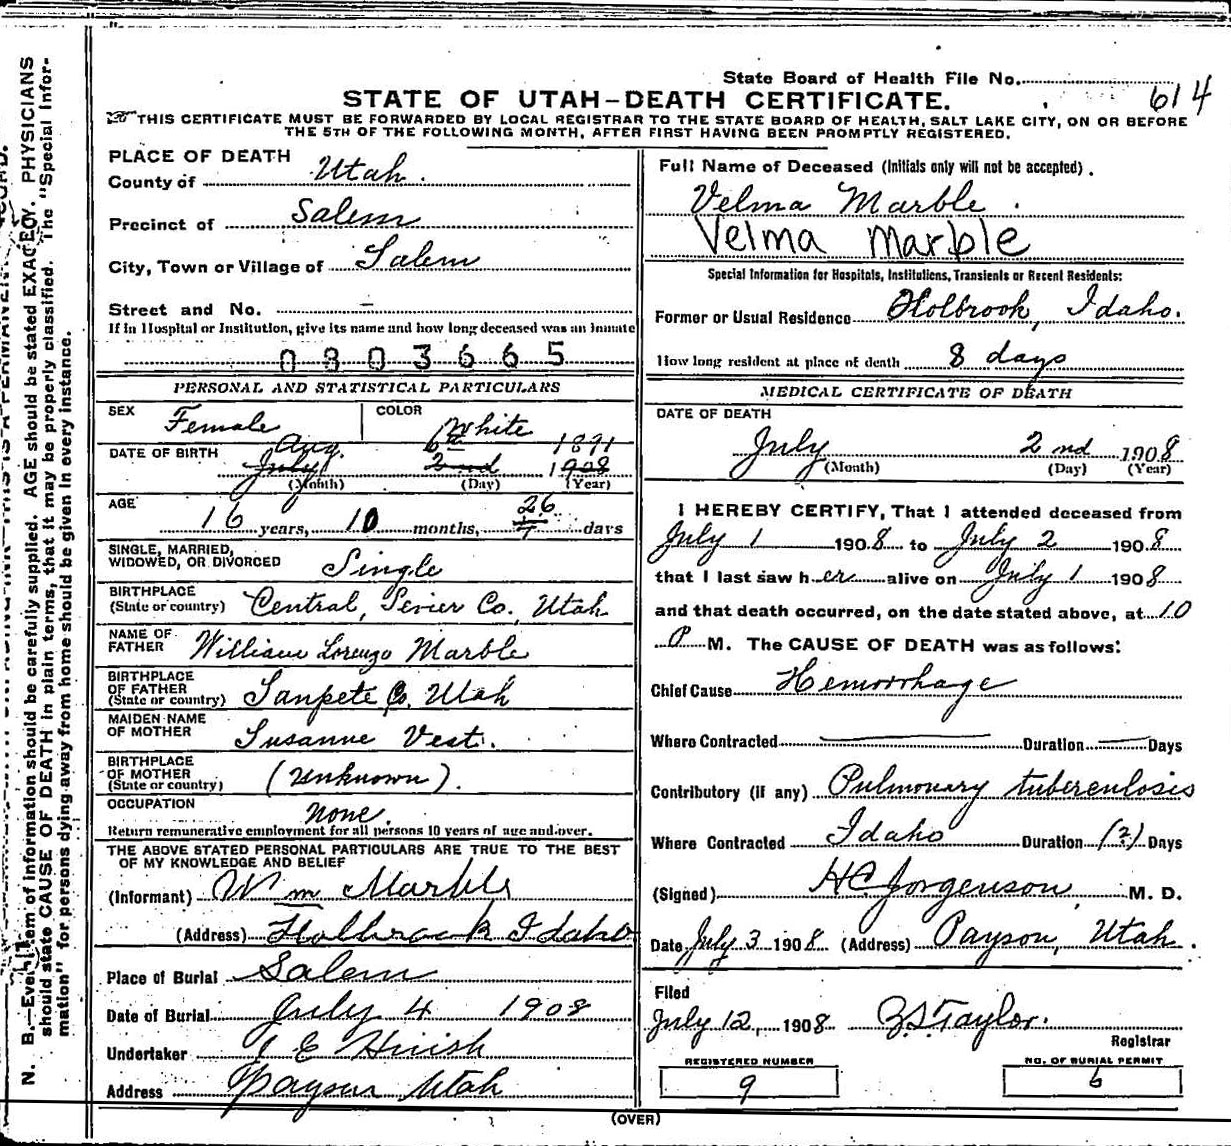 State Board of Health File No. 614
STATE OF UTAH-DEATH CERTIFICATE.
THIS CERTIFICATE MUST BE FORWARDED BY LOCAL REGISTRAR TO THE STATE BOARD OF HEALTH, SALT LAKE CITY, ON OR BEFORE
THE 5TH OF THE FOLLOWING MONTH, AFTER FIRST HAVING BEEN PROMPTLY REGISTERED.
PLACE OF DEATH
County of Utah.
Precinct of Salem
City, Town or Village of Salem
Street and No. –
If in Hospital or Institution, give its name and how long deceased was an inmate
0803665
PERSONAL AND STATISTICAL PARTICULARS
SEX Female COLOR White
DATE OF BIRTH Aug. 6th 1891
July 2nd 1908
(Month) (Day) (Year)
AGE 26
16 years, 10 months, days
SINGLE, MARRIED,
WIDOWED, OR DIVORCED Single
BIRTHPLACE
(State or country) Central, Sevier Co., Utah
NAME OF
FATHER William Lorenzo Marble
BIRTHPLACE
OF FATHER
(State or country) Sanpete Co. Utah
MAIDEN NAME
OF MOTHER Susanne Vest.
BIRTHPLACE
OF MOTHER
(State or country) (Unknown).
OCCUPATION none.
Return remunerative employment for all persons 10 years of age and over.
THE ABOVE STATED PERSONAL PARTICULARS ARE TRUE TO THE BEST
OF MY KNOWLEDGE AND BELIEF
(Informant) Wm Marble
(Address) Holbrook Idaho
Place of Burial Salem
Date of Burial July 4 1908
Undertaker
Address Payson Utah
Full Name of Deceased (Initials only will not be accepted).
Velma Marble.
Velma Marble
Special Information for Hospitals, Institutions, Transients or Recent Residents:
Former or Usual Residence Holbrook, Idaho.
How long resident at place of death 8 days
MEDICAL CERTIFICATE OF DEATH
DATE OF DEATH
July 2nd 1908
(Month) (Day) (Year)
I HEREBY CERTIFY, That I attended deceased from
July 1 1908 to July 2 1908
that I last saw her alive on July 1 1908
and that death occurred, on the date stated above, at 10
P M. The CAUSE OF DEATH was as follows:
Chief Cause Hemorrhage
Where Contracted — Duration — Days
Contributory (if any) Pulmonary tuberculosis
Where Contracted Idaho Duration (?) Days
(Signed) HC Jorgenson, M. D.
Date July 3 1908 (Address) Payson, Utah.
Filed
July 12, 1908 Taylor.
Registrar
REGISTERED NUMBER NO. OF BURIAL PERMIT
9 6
(OVER)
N. B.—Every item of information should be carefully supplied. AGE should be stated EXACTLY. PHYSICIANS
should state CAUSE OF DEATH in plain terms, that it may be properly classified. The "Special Infor-
mation" for persons dying away from home should be given in every instance.